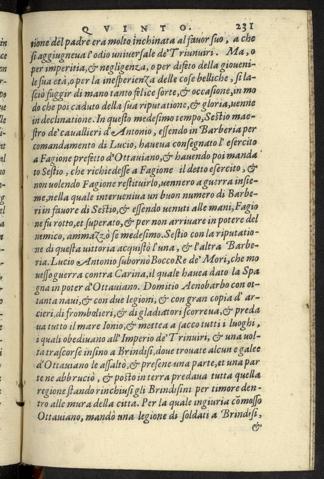 QVINTO. 231
tione del padre era molto inchinata al fauor suo, a che
si aggiungeua l'odio uniuersale de' Triunuiri. Ma, o
per imperitia, & negligenza, o per difetto della gioueni-
le sua età, o per la inesperienza delle cose belliche, si la-
sciò fuggir di mano tanto felice sorte, & occasione, in mo
do che poi caduto della sua riputatione, & gloria, uenne
in declinatione. In questo medesimo tempo, Sestio mae-
stro de' cauallieri d'Antonio, essendo in Barberia per
comandamento di Lucio, haueua consegnato l'esercito
a Fagione prefetto d'Ottauiano, & hauendo poi manda
to Sestio, che richiedesse a Fagione il detto esercito, &
non uolendo Fagione restituirlo, uennero a guerra insie-
me, nella quale interueniua un buon numero di Barbe-
ri in fauore di Sestio, & essendo uenuti alle mani, Fagio
ne fu rotto, et superato, & per non arriuare in potere del
nimico, ammazzò se medesimo. Sestio con la riputatio-
ne di questa uittoria acquistò l'una, & l'altra Barbe-
ria. Lucio Antonio subornò Bocco Re de' Mori, che mo
uesso guerra contra Carina, il quale hauea dato la Spa
gna in poter d'Ottauiano. Domitio Aenobarbo con ot-
tanta naui, & con due legioni, & con gran copia d'ar-
cieri, di frombolieri, & di gladiatori scorreua, & preda
ua tutto il mare Ionio, & mettea a sacco tutti i luoghi,
i quali obediuano all'Imperio de' Trinuiri, & una uol-
ta trascorse insino a Brindisi, doue trouate alcune galee
d'Ottauiano le assaltò, & presene una parte, et una par
te ne abbruciò, & posto in terra predaua tutta quella
regione stando rinchiusi gli Brindisini per timore den-
tro alle mura della citta. Per la quale ingiuria cõmosso
Ottauiano, mandò una legione di soldati a Brindisi,
&